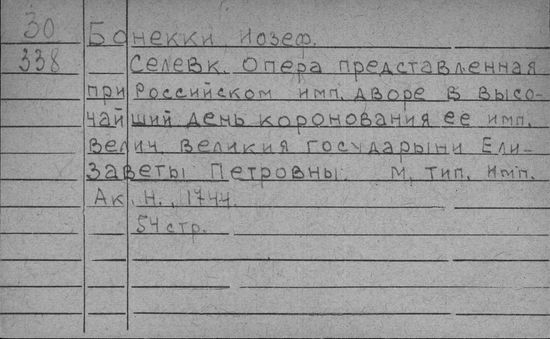 30 Бонекки, Иозеф.
338 Селевк. Опера представленная
при Российском имп. дворе в высо-
чайший день коронования ее имп.
велич. великия государыни Ели-
заветы Петровны. М, тип. имп.
Ак. Н., 1744.
54 стр.